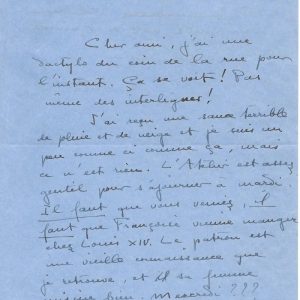 Cher ami, j'ai une
dactylo du coin de la rue pour
l'instant. Ça se voit! Pas
même des interlignes!
J'ai reçu une sauce terrible
de pluie et de neige et je suis un
peu comme ci comme ça, mais
ce n'est rien. L'Atelier est assez
gentil pour s'ajourner à mardi.
Il faut que vous veniez, il
faut que Françoise vienne manger
chez Louis XIV. Le patron est
une vieille connaissance que
je retrouve, et sa femme
bien. Mercredi ???